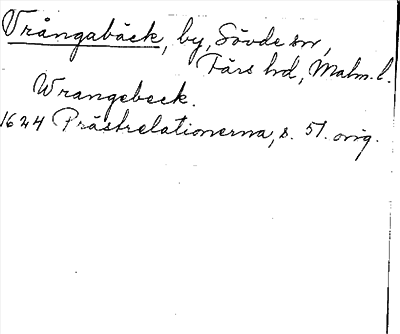 Vrångabäck, by, Sövde sn,
Färs hd, Malm. l.
Wrangebeck.
1624 Prästrelationerna, s. 51. orig.